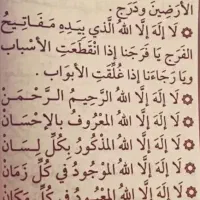 الأَرَضِينَ وَدَرَجَ .
لَا إِلَهَ إِلَّا اللهُ الَّذِي بِيَدِهِ مَفَاتِيحُ
الفَرَجِ يَا فَرَجَنَا إِذَا انْقَطَعَتِ الأَسْبَاب
وَيَا رَجَاءَنَا إِذَا غُلِّقَتِ الأَبْوَاب .
لَا إِلَهَ إِلَّا اللهُ الرَّحِيمُ الرَّحْمَـنُ
لَا إِلَهَ إِلَّا اللهُ المَعْرُوفُ بِالإِحْسَانِ
لَا إِلَهَ إِلَّا اللهُ المَذْكُورُ بِكُلِّ لِسَانٍ
لَا إِلَهَ إِلَّا اللهُ المَوْجُودُ فِي كُلِّ زَمَانٍ
لَا إِلَهَ إِلَّا اللهُ المَعْبُودُ فِي كُلِّ مَكَانٍ